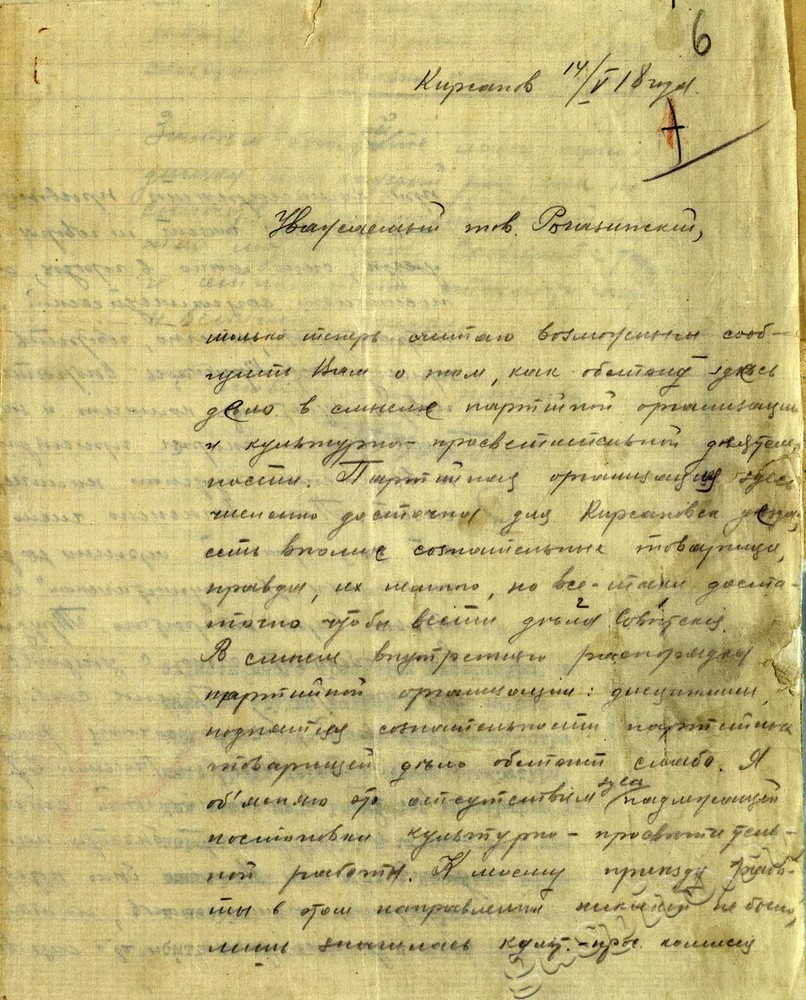 6
Кирсанов 14/V 18 года.
Уважаемый тов. Рогозинский,
только теперь считаю возможным сооб-
щить Вам о том, как обстоит здесь
дѣло в смысле партийной организации
и культурно-просветительной деятель
ности. Партийная организация здесь
численно достаточна для Кирсановск уезда,
есть вполне сознательные товарищи,
правда, их немного, но все-таки доста-
точно чтобы вести дѣла Советские.
В смысле внутреннего распорядка
партийной организации: дисциплины,
поднятия сознательности партийных
товарищей дѣло обстоит слабо. Я
об'ясняю это отсутствием здесь надлежащей
постановки культурно-просветитель-
ной работы. К моему приезду рабо-
ты в этом направлении никакой не было,
лишь значилась культ.-прос. комиссия